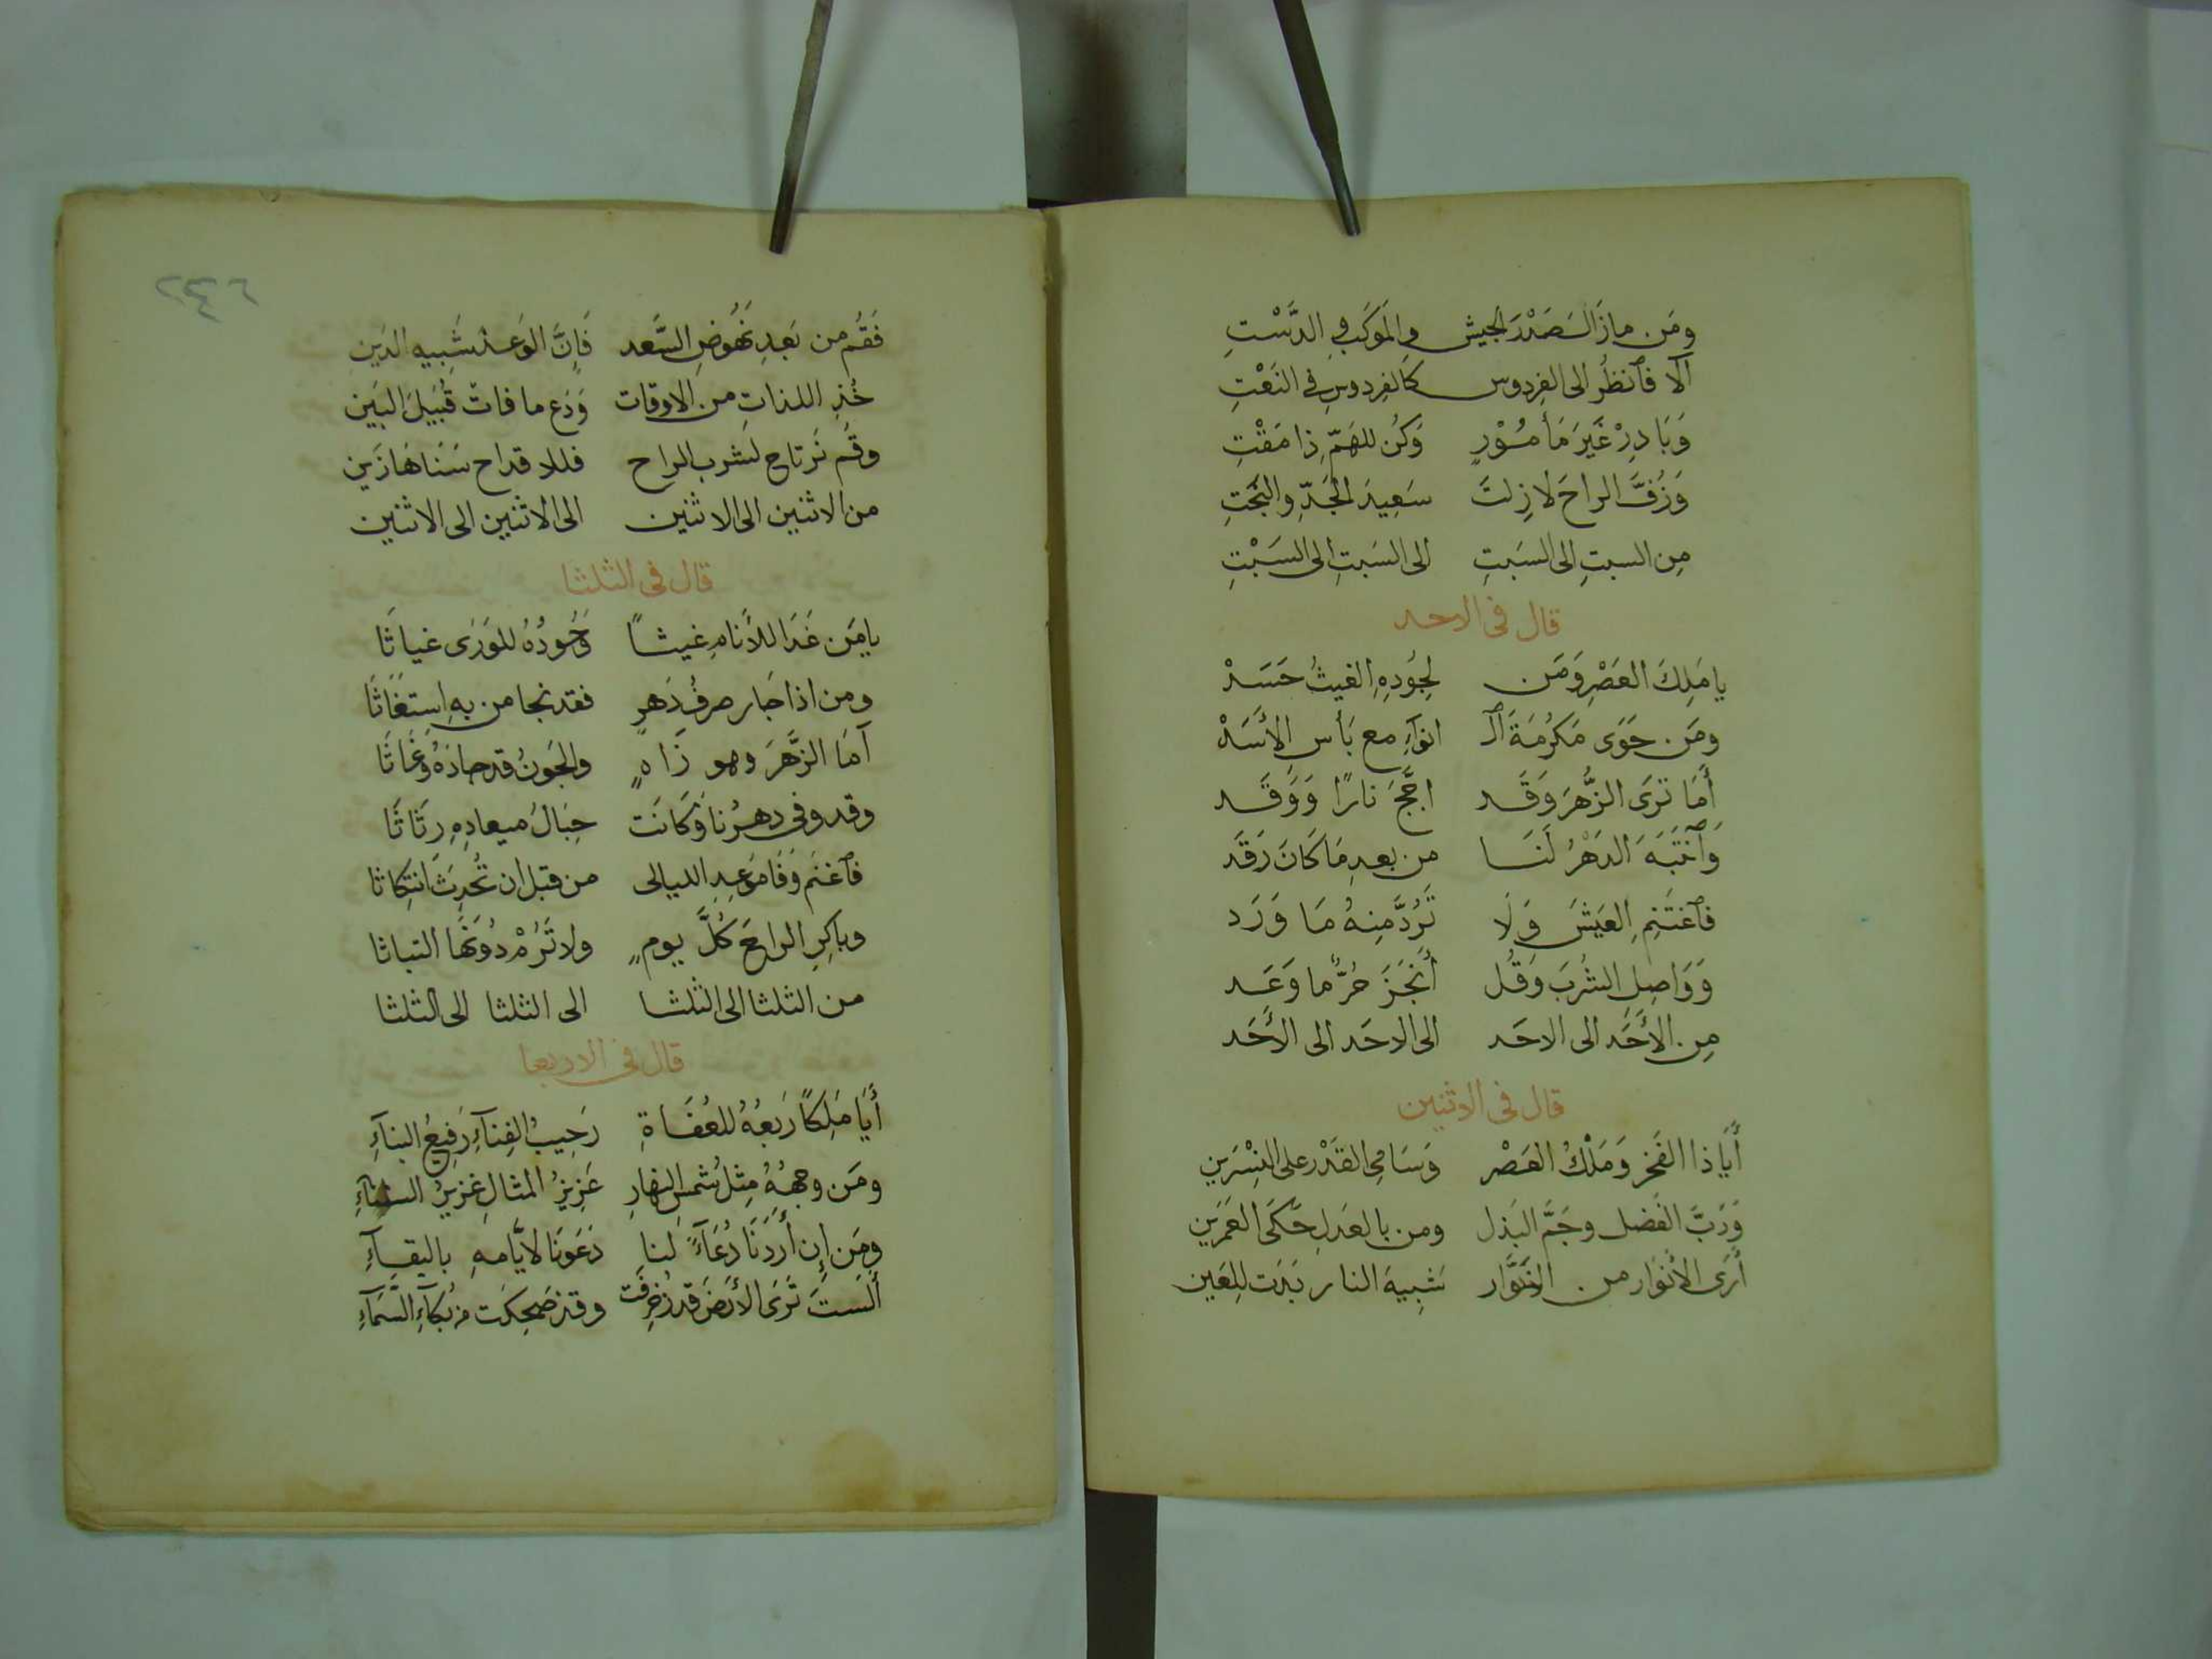 ومَن مازَالَ صَدْرَ الجيش والمَوكَبِ والدَّسْتِ
أَلا فٱنظُر الى الفِردوس كالفِردوسِ فى النَعْتِ
وَبَادِرْ غَيرَ مَأمُوْرٍ وَكُن للهَمِّ ذا مَقْتِ
وَزُفَّ الراحَ لازِلتَ سَعِيدَ الجَدِّ والبَخْتِ
مِن السبتِ الى السَبتِ الى السَبتِ الى السَبْتِ
قال فى الاحد
يا مَلِكَ العَصْرِ وَمَن لِجُودِهِ الغيثُ حَسَدْ
ومَن حَوَى مَكرُمَةَ الـ انوَآءِ مع بَأسِ الأَسَدْ
أَمَا تَرَى الزُّهرَ وَقَد اجَّجَ نارًا وَوَقَد
وَٱنتَبَهَ الدَهْرُ لَنَا من بعدِ مَا كَانَ رَقَد
فٱغتَنِمِ العَيشَ وَلَا تَرُدَّ مِنهُ مَا وَرَد
وَوَاصِلِ الشُربَ وَقُل أَنجَزَ حُرٌّ ما وَعَد
مِن الأَحَد الى الاحَد الى الاحَد الى الأَحَد
قال فى الاثنين
أَيَا ذا الفَخر وَمَلْكُ العَصْر وَسَامِى القَدْر على النِسْرَين
وَرَبَّ الفَضل وجَمَّ البَذل ومن بالعَدلِ حَكَى العُمَرَين
أَرَى الأَنوَار من النَوَّار شَبِيهَ النار بَدَت لِلعَين
٢٤٢
فَقُم من بَعدِ نُهُوضِ السَّعد فَإِنَّ الوَعد شَبِيه الدَين
خُذِ اللذاتِ من الاوقات وَدَع ما فات قُبَيلَ البَين
وقُم نَرتاح لشرب الراح فللاقداح سَنَاهَا زَين
من الاثنين الى الاثنين الى الاثنين الى الاثنين
قال فى الثلثا
يا مَن غَدَا للأَنامِ غيثًا وَجُودُهُ للوَرَى غياثَا
ومن اذا جَار صرفُ دَهرٍ فقد نجا من بهِ استَغَاثَا
أَمَا الزَّهرَ وهو زَاهٍ والجَونُ قد جادَهُ وَغَاثَا
وقد وفى دهرُنا وَكَانَت حِبَالُ ميعادِهِ رِثَاثَا
فٱغنَم وَفَا مَوعِدِ الليالى من قبل ان تُحدِثَ انتِكاثا
وباكِرِ الراحَ كُلَّ يومٍ ولا تَرُمْ دُونَهَا التباثا
من الثلثا الى الثلثا الى الثلثا الى الثلثا
قال فى الاربعا
أَيَا مَلِكًا رَبعُهُ للعُفَاةِ رَحِيبُ الفِنَآءِ رَفِيعُ البنآءِ
ومَن وجهُهُ مِثلُ شمسِ النهارِ عَزِيزُ المثالِ غزيرُ السنآءِ
ومَن إِن أَرَدنَا دُعَآءً لنا دَعَونَا لايَّامهِ بالبقآءِ
أَلَستَ تَرَى الأَرضَ قد زُخرِفَت وقد ضَحِكَت من بُكآءِ السَّمَآءِ